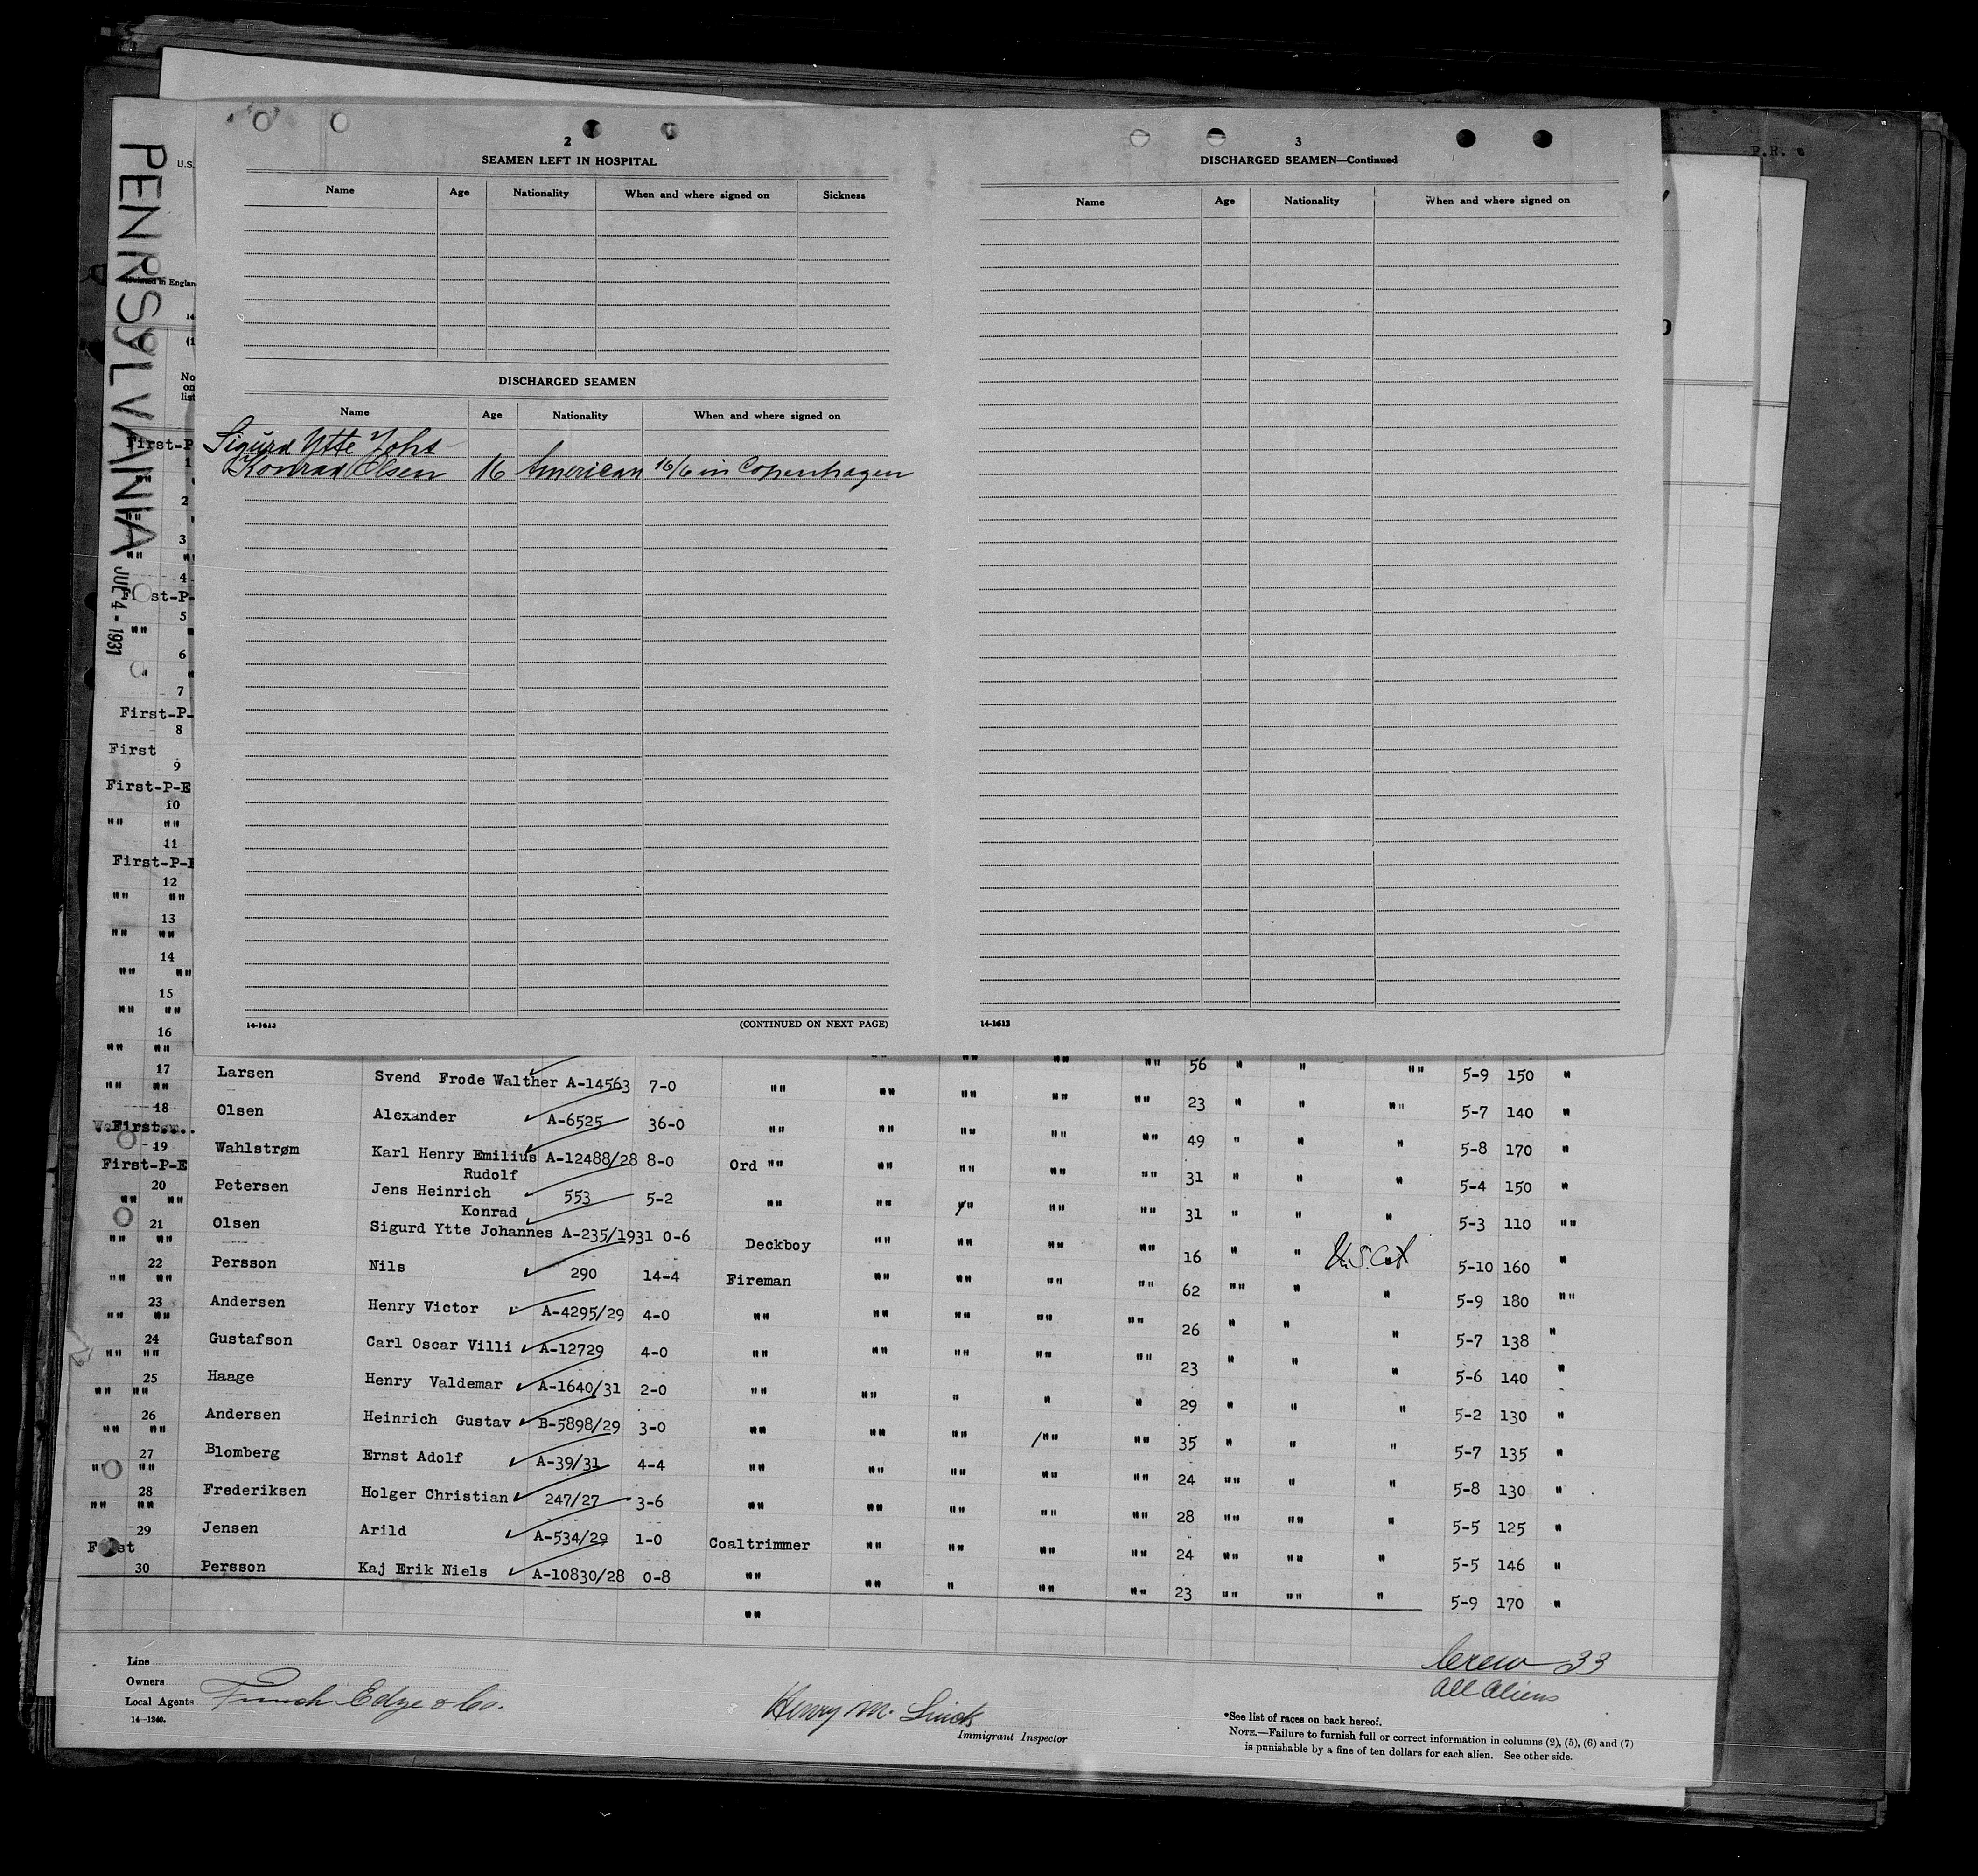 P.R. 6
PENNSYLVANIA JUL 4 - 1931
U.S.
Printed in Englan
14-
(1
No
on
list
2
SEAMEN LEFT IN HOSPITAL
Name Age Nationality When and where signed on Sickness
DISCHARGED SEAMEN
Name Age Nationality When and where signed on
Sigurd Ytte Johs
Konrad Olsen 16 American 16/6 in Copenhagen
14-1613 (CONTINUED ON NEXT PAGE)
3
DISCHARGED SEAMEN—Continued
Name Age Nationality When and where signed on
14-1613
First-P
1
2
3
" " "
4
First-P-
5
" "
6
7
First-P-
8
First
9
First-P-E
10
"" ""
11
First-P-E
12
"" ""
13
"" ""
14
"" ""
15
"" ""
16
"" "" "" "" "" "" 56 " " ""
17 Larsen Svend Frode Walther A-14563 7-0 "" "" "" "" "" 23 " " "" 5-9 150 "
"" ""
18 Olsen Alexander A-6525 36-0 "" "" "" "" "" 49 " " " 5-7 140 "
First
19 Wahlstrøm Karl Henry Emilius A-12488/28 8-0 Ord "" "" "" "" "" 31 " " " 5-8 170 "
First-P-E Rudolf
20 Petersen Jens Heinrich 553 5-2 "" "" "" "" "" 31 " " " 5-4 150 "
"" "" Konrad
21 Olsen Sigurd Ytte Johannes A-235/1931 0-6 Deckboy "" "" "" "" 16 " " U.S. Cit 5-3 110 ""
"" ""
22 Persson Nils 290 14-4 Fireman "" "" "" "" 62 "" " " 5-10 160 "
"" ""
23 Andersen Henry Victor A-4295/29 4-0 "" "" "" "" "" 26 " " " 5-9 180 ""
"" ""
24 Gustafson Carl Oscar Villi A-12729 4-0 "" "" "" "" "" 23 " " " 5-7 138 "
"" ""
25 Haage Henry Valdemar A-1640/31 2-0 "" "" " " " 29 " " " 5-6 140 "
"" ""
26 Andersen Heinrich Gustav B-5898/29 3-0 "" "" "" "" "" 35 " " " 5-2 130 "
"" ""
27 Blomberg Ernst Adolf A-39/31 4-4 "" "" "" "" "" 24 "" " " 5-7 135 "
"" ""
28 Frederiksen Holger Christian 247/27 3-6 "" "" "" "" "" 28 "" "" " 5-8 130 "
"" ""
29 Jensen Arild A-534/29 1-0 Coaltrimmer "" "" "" "" 24 "" "" " 5-5 125 "
First 5-5 146 "
30 Persson Kaj Erik Niels A-10830/28 0-8 "" "" " "" "" 23 "" "" " 5-9 170 "
""
Crew 33
All Aliens
Line
Owners
Local Agents Funch Edye & Co.
14—1240.
Henry M.
Immigrant Inspector
*See list of races on back hereof.
NOTE.—Failure to furnish full or correct information in columns (2), (5), (6) and (7)
is punishable by a fine of ten dollars for each alien. See other side.